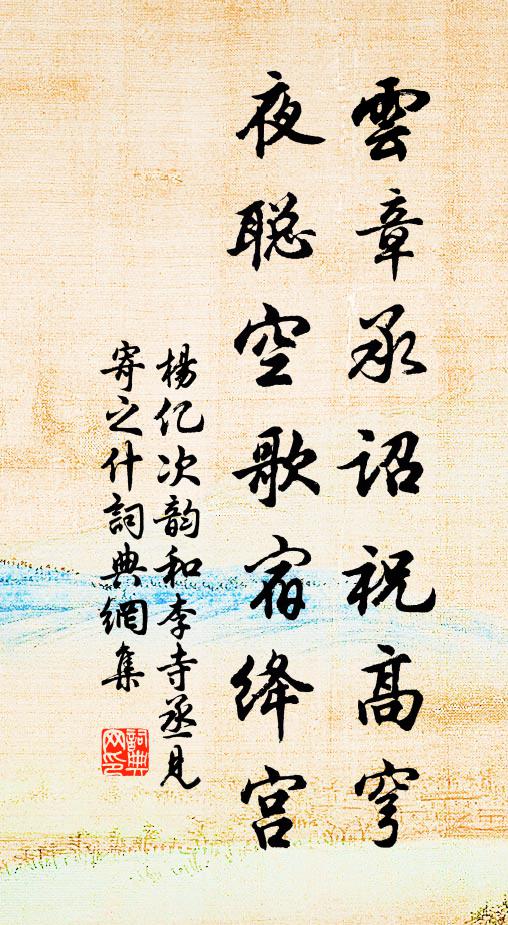 雲章承詔祝高穹
夜聪空歌宿绛宫
楊亿次韵和李寺丞見
寄之什詞典網集
詞典网印